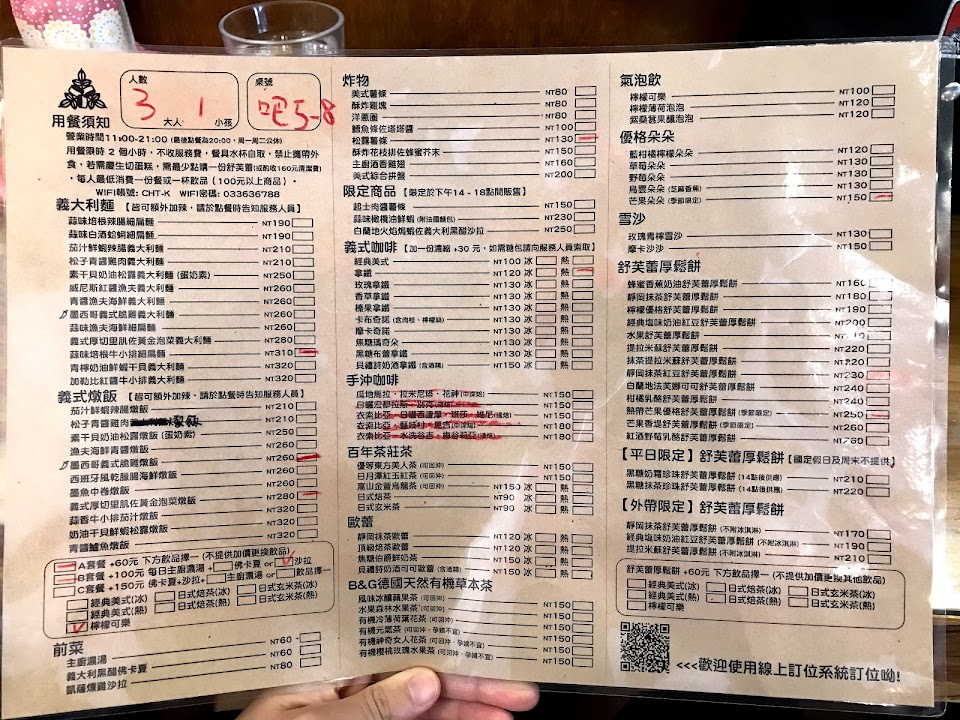 人數
3 大人 1 小孩
桌號
吧5-8
用餐須知
營業時間11:00-21:00 (最後點餐為20:00,周一周二公休)
用餐限時 2 個小時,不收服務費,餐具水杯自取,禁止攜帶外
食,若需慶生切蛋糕,需最少點購一份舒芙蕾(或酌收160元清潔費)
,每人最低消費一份餐或一杯飲品(100元以上商品)。
WIFI帳號: CHT-K WIFI密碼: 033636788
義大利麵【皆可額外加辣,請於點餐時告知服務人員】
蒜味培根辣腸細扁麵 NT190
蒜味白酒蛤蜊細扁麵 NT190
茄汁鮮蝦辣腸義大利麵 NT210
松子青醬雞肉義大利麵 NT210
素干貝奶油松露義大利麵 (蛋奶素) NT250
威尼斯紅醬漁夫義大利麵 NT260
青醬漁夫海鮮義大利麵 NT260
墨西哥義式脆雞義大利麵 NT260
蒜味漁夫海鮮細扁麵 NT260
義式厚切里肌佐黃金泡菜義大利麵 NT280
蒜味培根牛小排細扁麵 NT310
青檸奶油鮮蝦干貝義大利麵 NT320
加勒比紅醬牛小排義大利麵 NT320
義式燉飯【皆可額外加辣,請於點餐時告知服務人員】
茄汁鮮蝦辣腸燉飯 NT210
松子青醬雞肉 NT210
素干貝奶油松露燉飯 (蛋奶素) NT250
漁夫海鮮青醬燉飯 NT260
墨西哥義式脆雞燉飯 NT260
西班牙風乾臘腸海鮮燉飯 NT260
墨魚中卷燉飯 NT260
義式厚切里肌佐黃金泡菜燉飯 NT280
蒜香牛小排茄汁燉飯 NT320
奶油干貝鮮蝦松露燉飯 NT320
青醬鱸魚燉飯 NT320
A套餐 +60元 下方飲品擇一 (不提供加價更換飲品)
B套餐 +100元 每日主廚濃湯+ 佛卡夏 or 沙拉
C套餐 +150元 佛卡夏+沙拉+ 主廚濃湯 or 飲品擇一
經典美式(冰) 日式焙茶(冰) 日式玄米茶(冰)
經典美式(熱) 日式焙茶(熱) 日式玄米茶(熱)
檸檬可樂
前菜
主廚濃湯 NT60
義大利黑醋佛卡夏 NT60
凱薩燻雞沙拉 NT80
炸物
美式薯條 NT80
酥炸雞塊 NT80
洋蔥圈 NT80
鱈魚條佐塔塔醬 NT100
松露薯條 NT130
酥炸花枝排佐蜂蜜芥末 NT150
主廚酒香雞翅 NT160
美式綜合拼盤 NT200
限定商品【限定於下午14 - 18點間販售】
起士肉醬薯條 NT150
蒜味橄欖油鮮蝦 (附法國麵包) NT230
白蘭地火焰焗蝦佐義大利黑醋沙拉 NT250
義式咖啡【加一份濃縮 +30 元,如需糖包請向服務人員索取】
經典美式 NT100 冰 熱
拿鐵 NT120 冰 熱
玫瑰拿鐵 NT130 冰 熱
香草拿鐵 NT130 冰 熱
榛果拿鐵 NT130 冰 熱
卡布奇諾 (含肉桂、檸檬絲) NT130 冰 熱
摩卡奇諾 NT130 冰 熱
焦糖瑪奇朵 NT130 冰 熱
黑糖布蕾拿鐵 NT150 冰 熱
貝禮詩奶酒拿鐵 (含酒精) NT150 冰 熱
手沖咖啡
瓜地馬拉,拉米尼塔,花神 (中深焙) NT150 冰 熱
NT150 冰 熱
NT150 冰 熱
NT180 冰 熱
NT180 冰 熱
百年茶莊茶
優等東方美人茶 (可回沖) NT150
日月潭紅玉紅茶 (可回沖) NT150
富山金萱烏龍茶 (可回沖) NT150 冰 熱
日式焙茶 NT90 冰 熱
日式玄米茶 NT90 冰 熱
歐蕾
靜岡抹茶歐蕾 NT120 冰 熱
頂級焙茶歐蕾 NT120 冰 熱
焦糖伯爵鮮奶茶 NT130 冰 熱
貝禮詩奶酒可可歐蕾 (含酒精) NT150 冰 熱
B&G德國天然有機草本茶
風味冰釀蘋果茶 (可回沖) NT150
水果森林水果茶 (可回沖) NT150
有機冷薄荷葉花茶 (可回沖) NT150
有機元氣茶 (可回沖、孕婦不宜) NT150
有機神奇女人花茶 (可回沖、孕婦不宜) NT150
有機櫻桃玫瑰水果茶 (可回沖、孕婦不宜) NT150
氣泡飲
檸檬可樂 NT100
檸檬薄荷泡泡 NT120
紫桑葚果釀泡泡 NT120
優格朵朵
藍柑橘檸檬朵朵 NT120
草莓朵朵 NT130
野莓朵朵 NT130
烏雲朵朵 (芝麻香蕉) NT130
芒果朵朵 (季節限定) NT150
雪沙
玫瑰青檸雪沙 NT130
摩卡沙沙 NT150
舒芙蕾厚鬆餅
蜂蜜香蕉奶油舒芙蕾厚鬆餅 NT160
靜岡抹茶舒芙蕾厚鬆餅 NT180
檸檬優格舒芙蕾厚鬆餅 NT190
經典塩味奶油紅豆舒芙蕾厚鬆餅 NT200
水果舒芙蕾厚鬆餅
提拉米蘇舒芙蕾厚鬆餅 NT220
抹茶提拉米蘇舒芙蕾厚鬆餅 NT220
靜岡抹茶紅豆舒芙蕾厚鬆餅 NT230
白蘭地法芙娜可可舒芙蕾厚鬆餅 NT240
柑橘乳酪舒芙蕾厚鬆餅 NT240
熱帶芒果優格舒芙蕾厚鬆餅 (季節限定) NT250
芒果香堤舒芙蕾厚鬆餅 (季節限定) NT260
紅酒野莓乳酪舒芙蕾厚鬆餅 NT280
【平日限定】舒芙蕾厚鬆餅【國定假日及周末不提供】
黑糖奶霜珍珠舒芙蕾厚鬆餅 (14點後供應) NT210
黑糖抹茶珍珠舒芙蕾厚鬆餅 (14點後供應) NT220
【外帶限定】舒芙蕾厚鬆餅
靜岡抹茶舒芙蕾厚鬆餅 (不附冰淇淋) NT170
經典塩味奶油紅豆舒芙蕾厚鬆餅 (不附冰淇淋) NT190
提拉米蘇舒芙蕾厚鬆餅 (不附冰淇淋) NT210
舒芙蕾厚鬆餅 +60元 下方飲品擇一 (不提供加價更換其他飲品)
經典美式(冰) 日式焙茶(冰) 日式玄米茶(冰)
經典美式(熱) 日式焙茶(熱) 日式玄米茶(熱)
檸檬可樂
<<<歡迎使用線上訂位系統訂位呦!